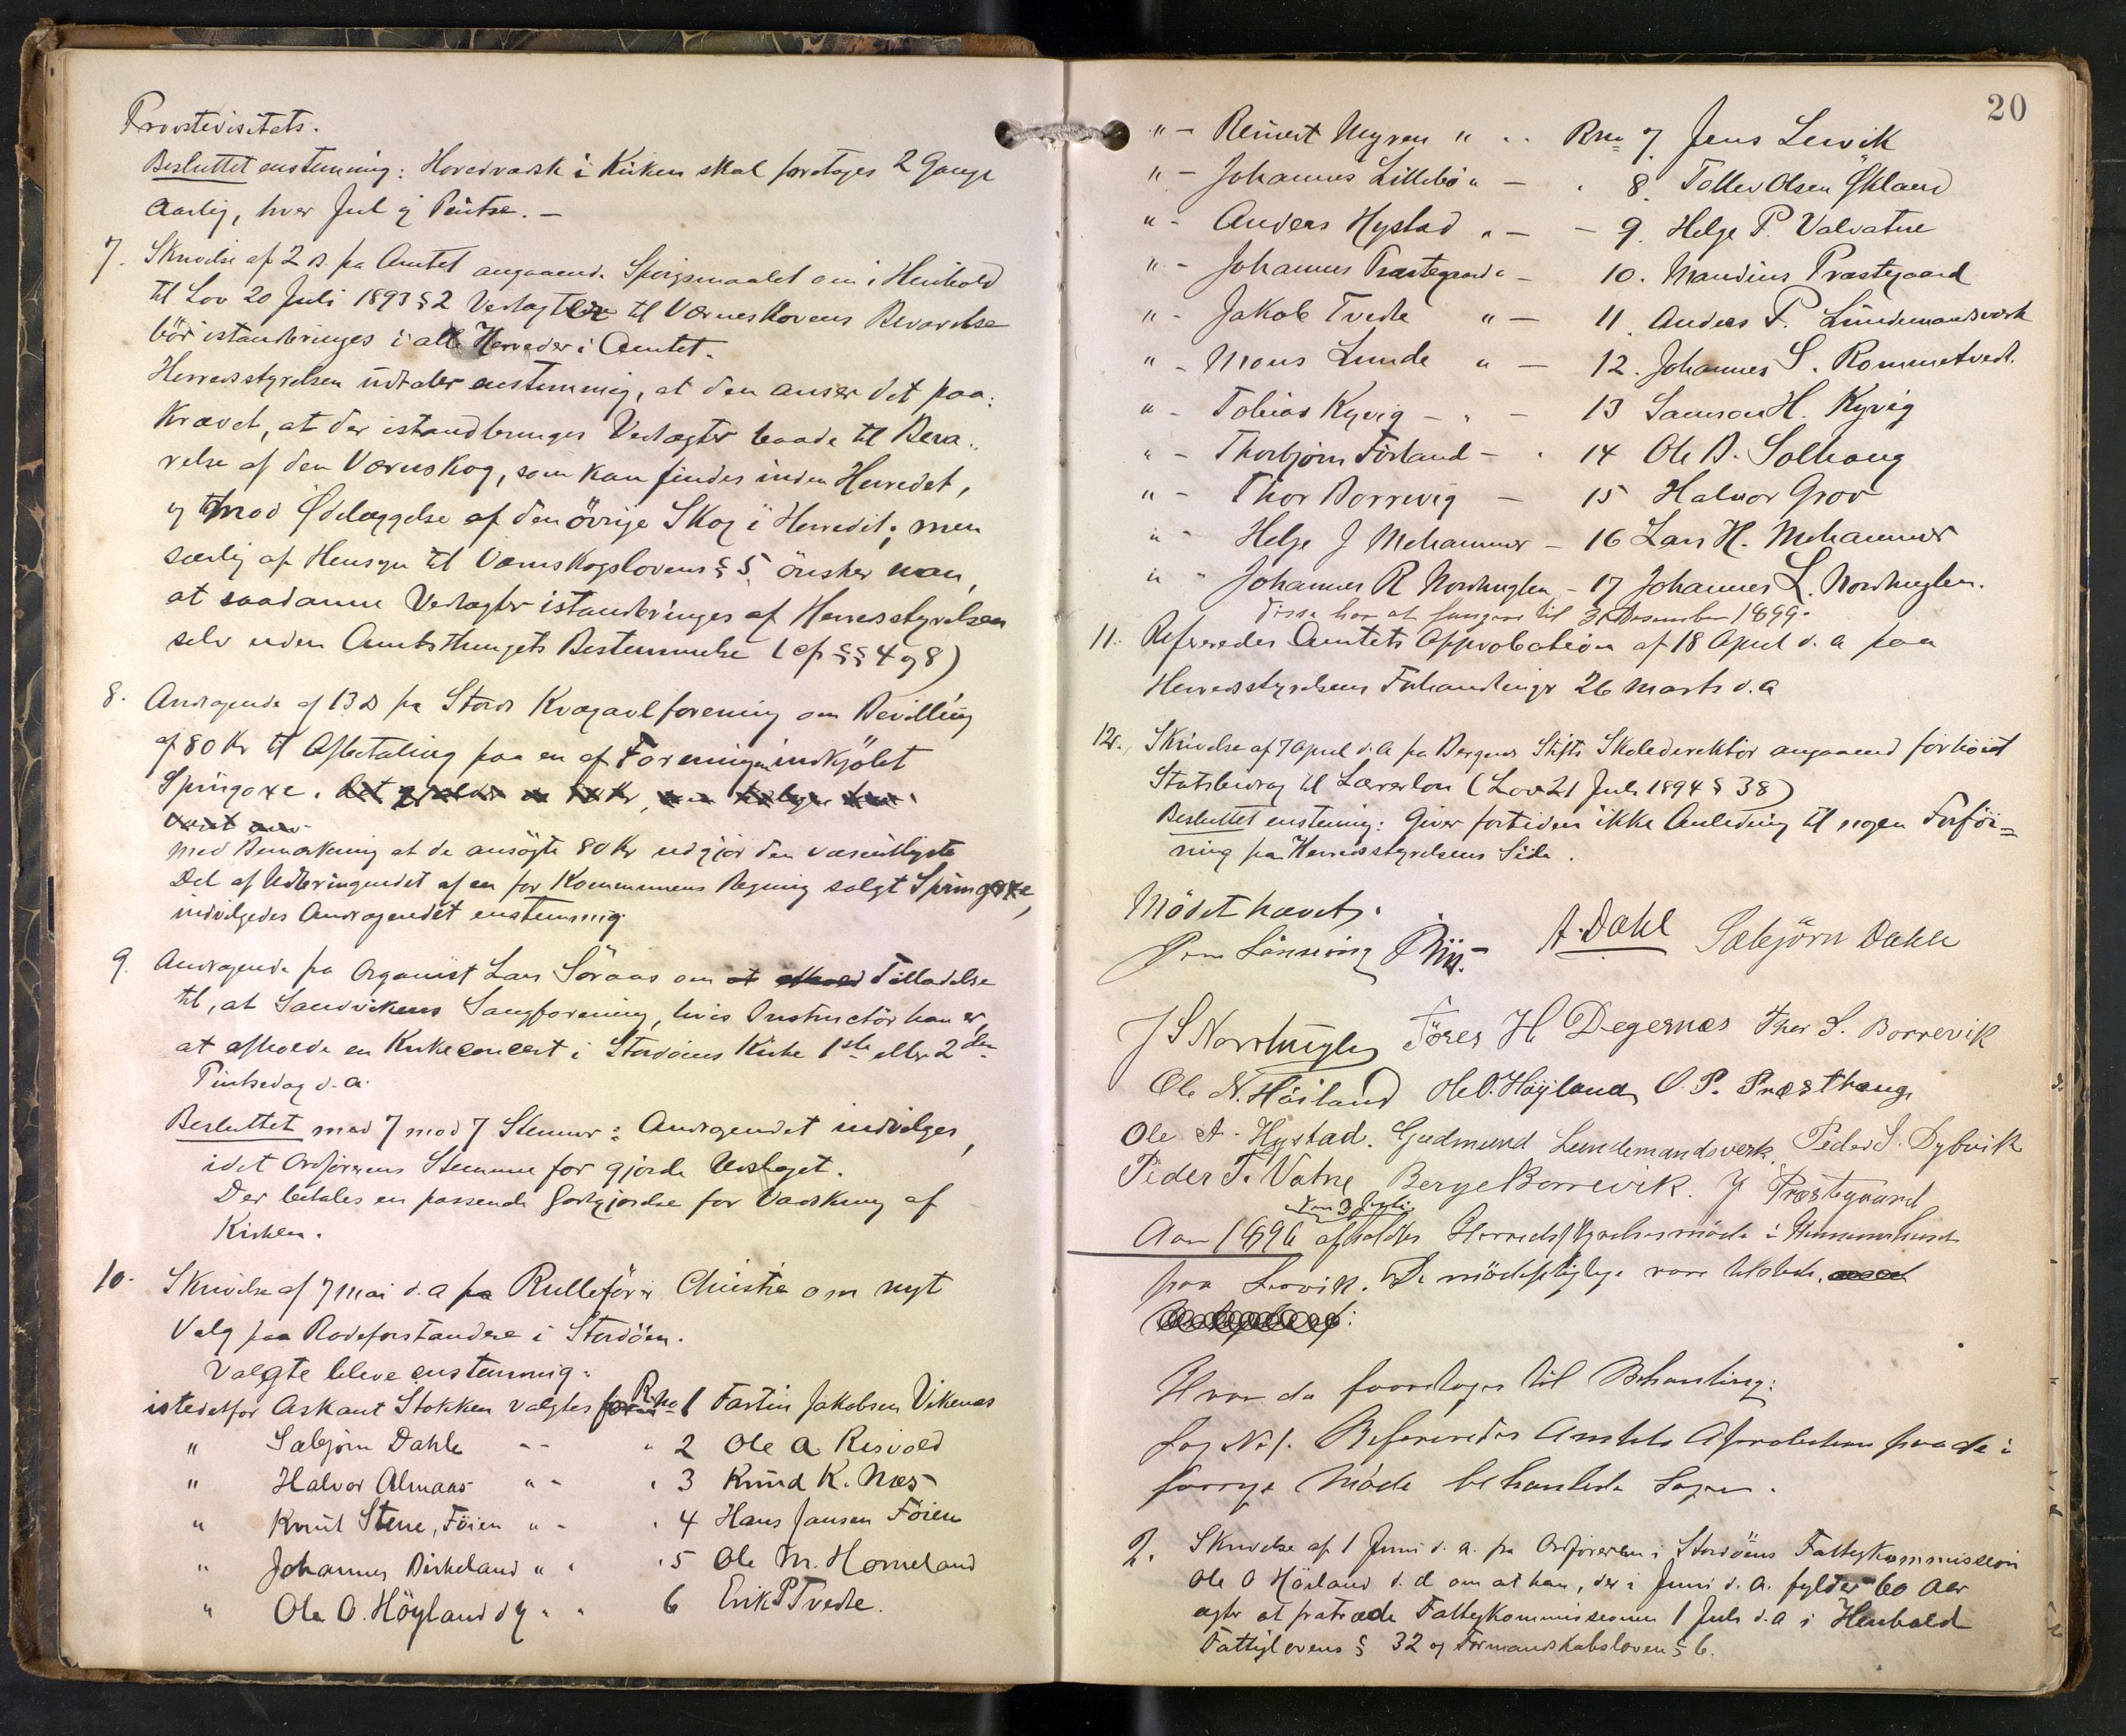 Provstevisitats.
Besluttet enstemmig: Hovedvadsk i Kirken skal foretages 2 Gange
aarlig, hver Jul og Pintse. —
7. Skrivelse af 2 ds. fra Amtet angaaende Spörgsmaalet om i Henhold
til Lov 20 Juli 1893 § 2 Vedtægter til Værneskovens Bevarelse
bör istandbringes i alle Herreder i Amtet.
Herredsstyrelsen udtaler enstemmig, at den anser det paa-
krævet, at der istandbringes Vedtægter baade til Beva-
relse af den Værnskog, som kan findes inden Herredet,
og mod Ødelæggelse af den övrige Skog i Herredet; men
særlig af Hensyn til Værnskogslovens § 5 önsker man,
at saadanne Vedtægter istandbringes af Herredsstyrelsen
selv uden Amtsthingets Bestemmelse (cfr §§ 4 og 8)
8. Andragende af 13 ds fra Stords Kvægavlforening om Bevilling
af 80 Kr til Afbetaling paa en af Foreningen indkjöbt
Springoxe.
med Bemærkning at de ansögte 80 Kr udgjör den væsentligste
Del af Udbringendet af en for Kommunens Regning solgt Springoxe,
indvilgedes Andragendet enstemmig
9. Andragende fra Organist Lars Söraas om Tilladelse
til, at Sandvikens Sangforening, hvis Instructör han er,
at afholde en Kirkeconcert i Stordöens Kirke 1ste eller 2den
Pintsedag d. a.
Besluttet med 7 mod 7 Stemmer: Andragendet indvilges,
idet Ordförerens Stemme gjorde Udslaget.
Der betales en passende Godtgjörelse for Vadskning af
Kirken.
10. Skrivelse af 7 Mai d. a fra Rulleförer Christie om nyt
Valg paa Rodeforstandere i Stordöen.
Valgte bleve enstemmig:
istedetfor Askant Stokken valgtes for R. no 1 Tastin Jakobsen Vikenes
" Sæbjörn Dahle - - " 2 Ole A Risvold
" Halvor Almaas " - " 3 Knud K. Næs
" Knut Stene, Föien " - " 4 Hans Jansen Föien
" Johannes Birkeland " " " 5 Ole M. Horneland
" Ole O. Höyland d y " " 6 Erik P Tvedte.
20
" - Reinert Myren " .. Rno 7. Jens Lervik
" - Johannes Lillebö " — . 8. Tollev Olsen Økland
" - Anders Hystad " — - 9. Helge P. Valvatne
" - Johannes Præstegaard " — 10. Mandius Præstgaard
" - Jakob Tvedte " — 11. Anders P. Lundemandsverk
" - Mons Lunde " — 12. Johannes S. Rommetvedt.
" - Tobias Kyvig - " - 13 Samson H. Kyvig
" - Thorbjörn Förland - . 14 Ole B. Solhaug
" - Thor Borrevig — 15 Halvor Grov
" - Helge J Mehammer — 16 Lars H. Mehammer
" " Johannes R Nordhuglen - 17 Johannes L. Nordhuglen.
Disse har at fungere til 31 Desember 1899.
11. Refereredes Amtets Approbation af 18 April d. a paa
Herredsstyrelsens Forhandlinger 26 Marts d. a
12. Skrivelse af 7 April d. a fra Bergens Stifts Skoledirektör angaaend forhöiet
Statsbidrag til Lærerlön (Lov 21 Juli 1894 § 38)
Besluttet enstemmig: Giver fortiden ikke Anledning til nogen Forföi-
ning fra Herredsstyrelsens Side.
Mödet hævet.
A. Dahl Sæbjörn Dahle
J S Nordhugle Töres H Degernes Thor S. Borrevik
Ole N. Höiland Ole O. Höyland O. P. Præsthaug
Ole A. Hystad. Gudmund Lundemandsverk Peder S. Dybvik
Peder T. Vatne Berge Borrevik. J Præstegaard
den 3 Juli
Aar 1896 afholdtes Herredsstyrelsesmöde i
paa Lervik. De mödepligtige vare tilstede,
Hvor da foretages til Behandling:
Sag No 1. Refereredes Amtets Aprobation paa de i
forrige Möde behandlede Sager.
2. Skrivelse af 1 Juni d. a. fra Ordföreren i Stordöens Fattigkommission
Ole O Höiland d. æ om at han, der i Juni d. a. fylder 60 Aar
agter at fratræde Fattigkommissionen 1 Juli d. a i Henhold
Fattiglovens § 32 og Formandskabsloven § 6.